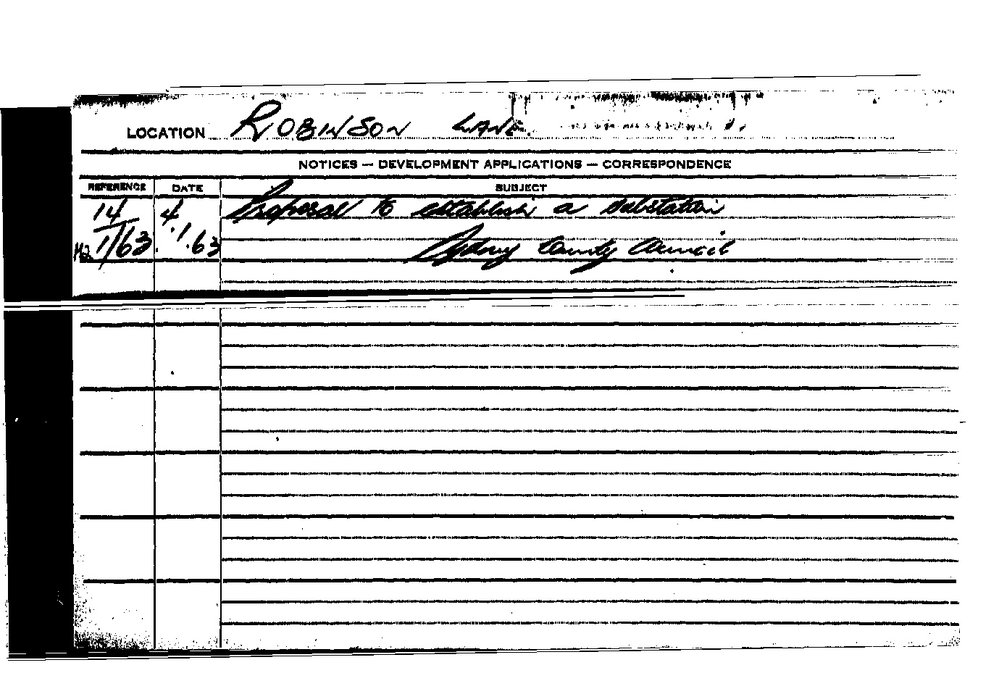 LOCATION ROBINSON LANE
NOTICES — DEVELOPMENT APPLICATIONS — CORRESPONDENCE
REFERENCE DATE SUBJECT
14 4 Proposal to establish a substation
1/63 .1.63 Sydney County Council